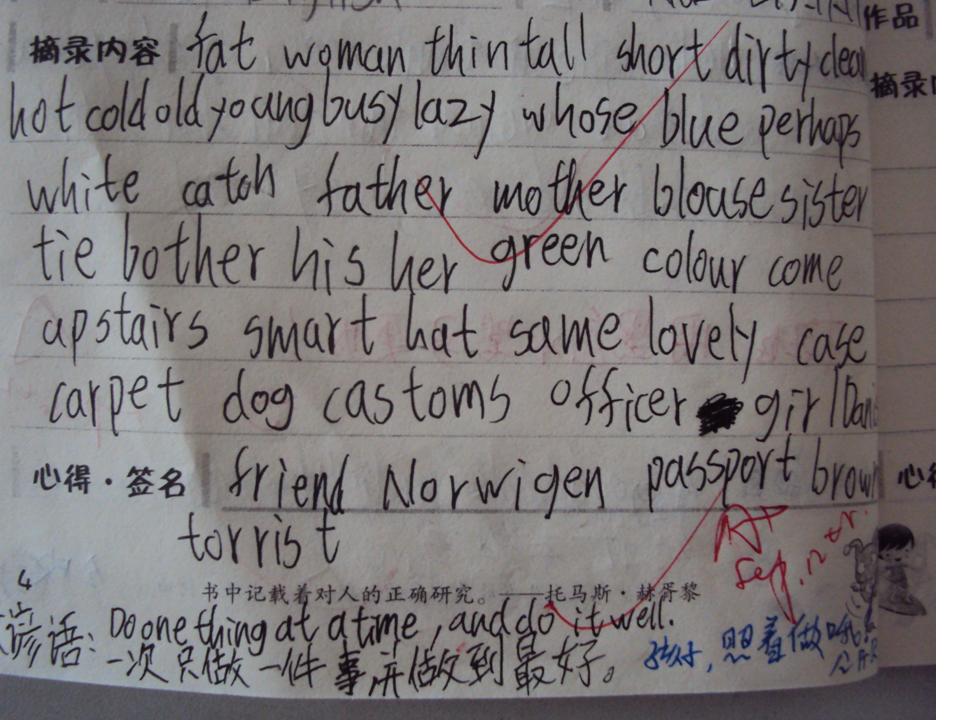 作品
摘录内容 fat woman thin tall short dirty clean
摘录
hot cold old young busy lazy whose blue perhaps
white catch father mother blouse sister
tie bother his her green colour come
apstairs smart hat same lovely case
carpet dog castoms officer girl Dani
心得·签名 friend Norwigen passport brown
心得
torrist
A+
Sep. 12
书中记载着对人的正确研究。——托马斯·赫胥黎
谚语: Do one thing at a time, and do it well.
一次只做一件事并做到最好。
孩子,照着做